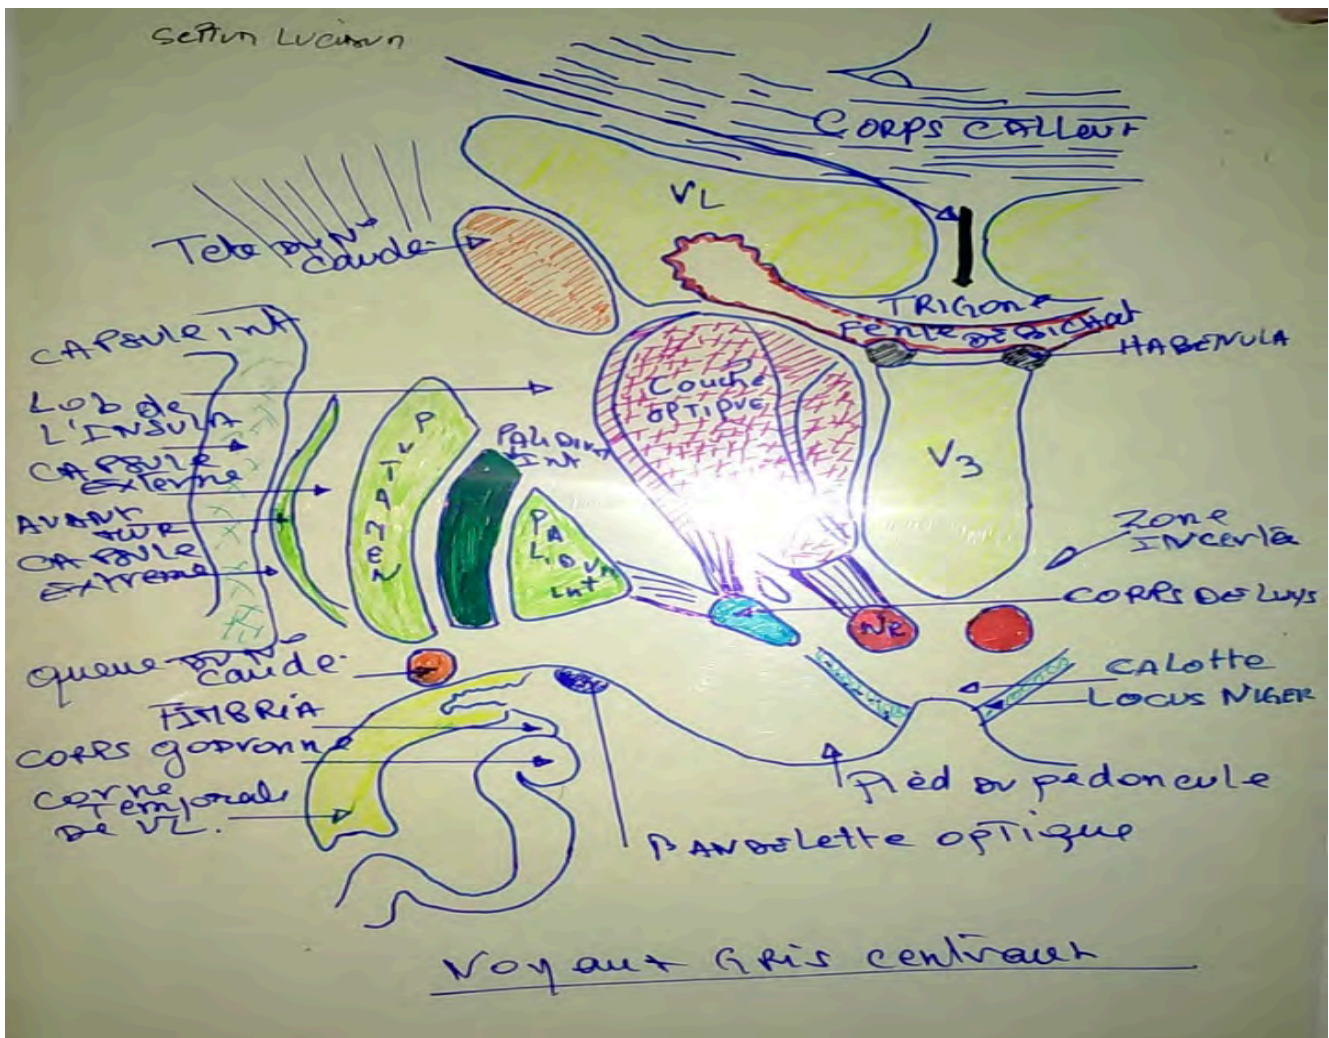 Septum Lucidum
CORPS CALLEUX
VL
Tete DU N^x
Caudé
TRIGONE
FENTE DE BICHAT
HABENULA
CAPSULE INT
LOB de
L'INSULA
CAPSULE
EXTERNE
AVANT
MUR
CAPSULE
EXTREME
PUTAMEN
PALIDUM
INT
PALIDUM
Int
Couche
OPTIQUE
V3
ZONE
INCERTA
CORPS DE LUYS
NR
CALOTTE
LOCUS NIGER
Queue DU N^x
Caudé
FIMBRIA
CORPS godronné
Corne
Temporale
De VL.
Pied DU pédoncule
BANDELETTE OPTIQUE
Noyaux Gris centraux